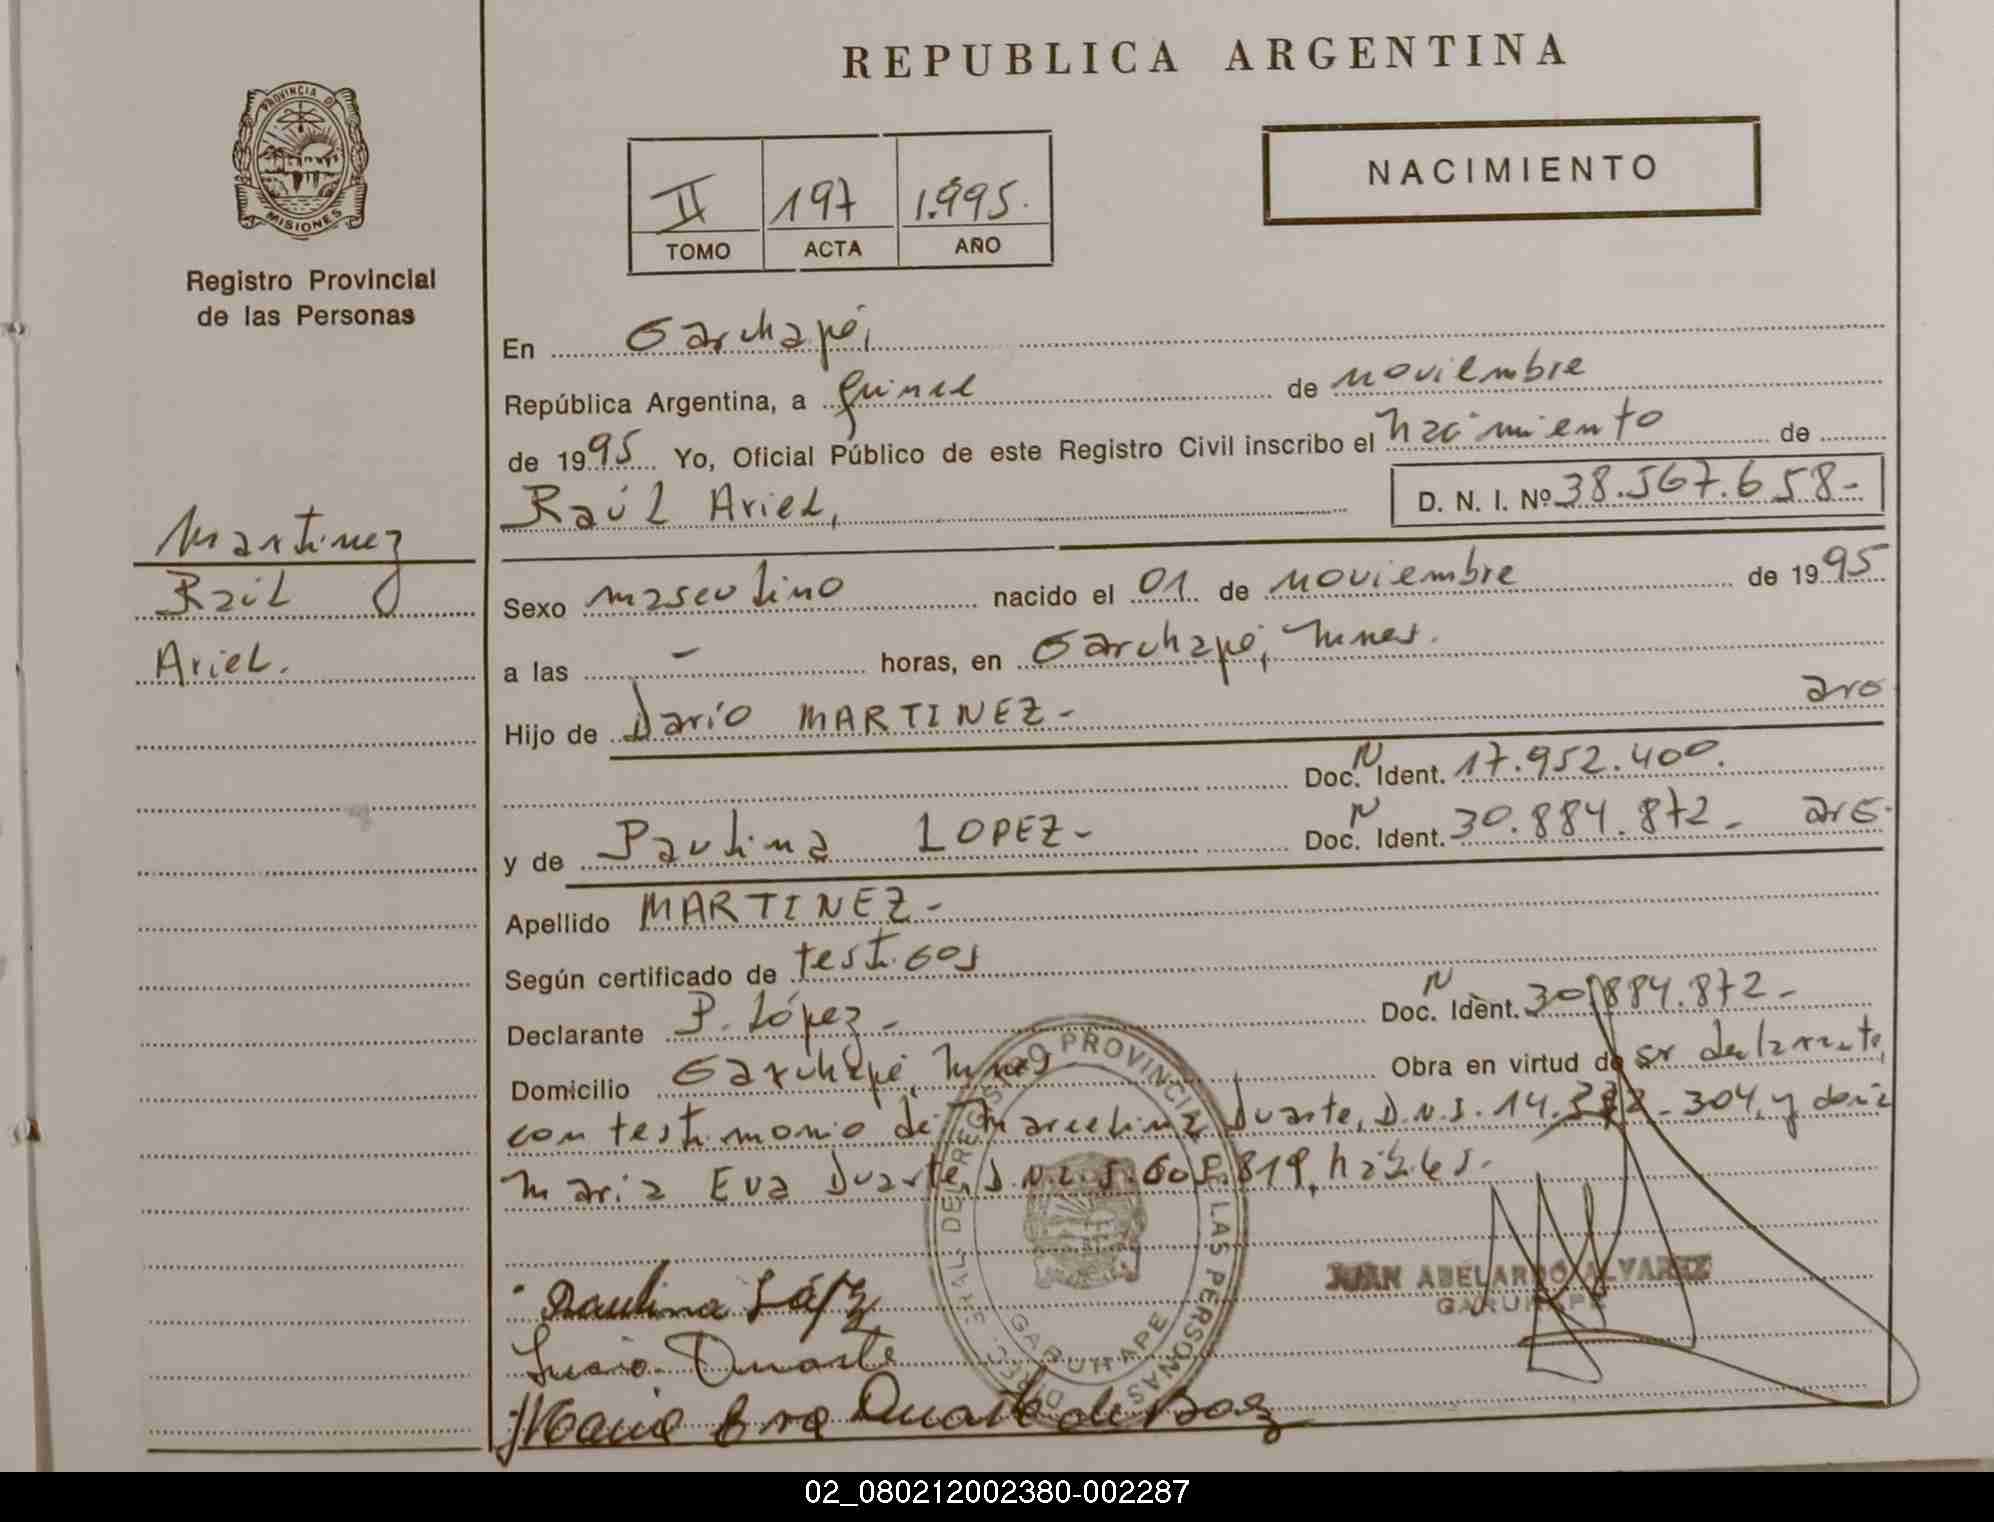 REPUBLICA ARGENTINA
PROVINCIA DE
MISIONES
Registro Provincial
de las Personas
II 197 1.995.
TOMO ACTA AÑO
NACIMIENTO
Martinez
Raúl
Ariel.
En Garuhapé,
República Argentina, a quince de noviembre
de 1995 Yo, Oficial Público de este Registro Civil inscribo el nacimiento de
Raúl Ariel, D. N. I. Nº 38.567.658-
Sexo masculino nacido el 01 de noviembre de 1995
a las - horas, en Garuhapé, Mnes.
Hijo de Darío MARTINEZ- arg
Doc. N Ident. 17.952.400.
y de Paulina LOPEZ- Doc. N Ident. 30.884.872- arg.
Apellido MARTINEZ-
Según certificado de testigos
Declarante P. López- Doc. N Ident. 30.884.872-
Domicilio Garuhapé, Mnes Obra en virtud de su declarante,
con testimonio de Marcelina Duarte, D.N.I. 14. 304, y doña
Maria Eva Duarte, hábiles.
DIREC. GRAL. DEL REGISTRO PROVINCIAL DE LAS PERSONAS
GARUHAPE
JUAN ABELARDO ALVAREZ
GARUHAPE
Paulina López
Lucio Duarte
Maria Eva Duarte de Boez
02_080212002380-002287